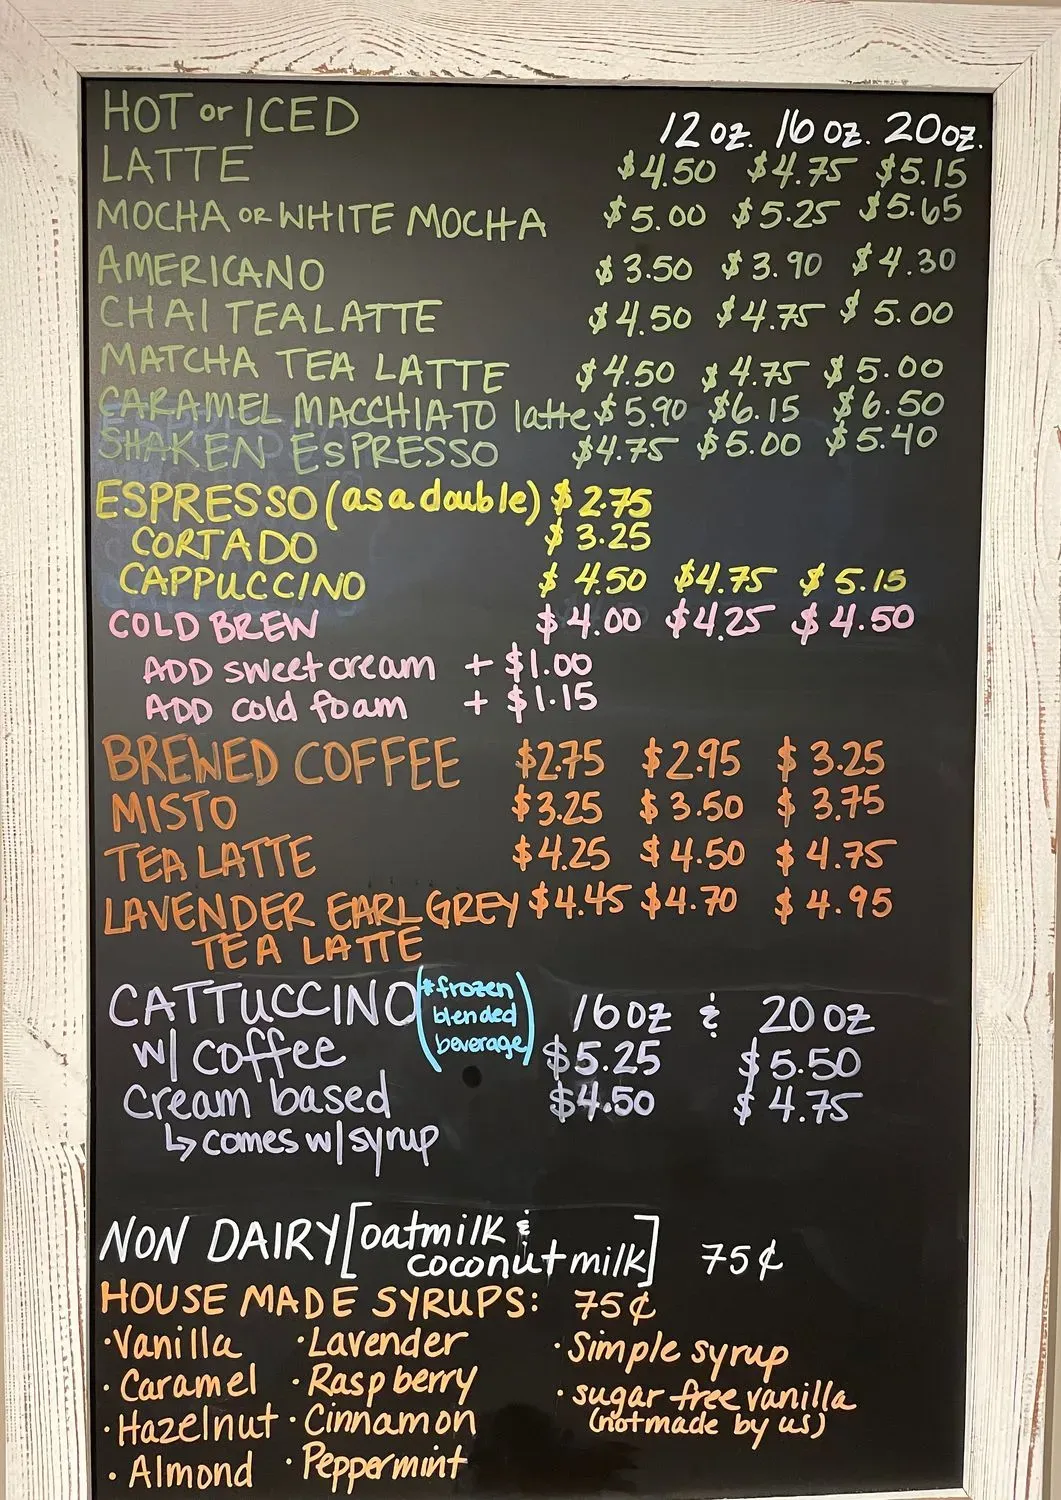 HOT or ICED 12 oz. 16 oz. 20 oz.
LATTE $4.50 $4.75 $5.15
MOCHA OR WHITE MOCHA $5.00 $5.25 $5.65
AMERICANO $3.50 $3.90 $4.30
CHAI TEA LATTE $4.50 $4.75 $5.00
MATCHA TEA LATTE $4.50 $4.75 $5.00
CARAMEL MACCHIATO latte $5.90 $6.15 $6.50
SHAKEN ESPRESSO $4.75 $5.00 $5.40
ESPRESSO (as a double) $2.75
CORTADO $3.25
CAPPUCCINO $4.50 $4.75 $5.15
COLD BREW $4.00 $4.25 $4.50
ADD sweet cream + $1.00
ADD cold foam + $1.15
BREWED COFFEE $2.75 $2.95 $3.25
MISTO $3.25 $3.50 $3.75
TEA LATTE $4.25 $4.50 $4.75
LAVENDER EARL GREY $4.45 $4.70 $4.95
TEA LATTE
CATTUCCINO (*frozen blended beverage) 16 oz & 20 oz
w/ coffee $5.25 $5.50
Cream based $4.50 $4.75
↳ comes w/ syrup
NON DAIRY [oatmilk & coconut milk] 75¢
HOUSE MADE SYRUPS: 75¢
· Vanilla · Lavender · Simple syrup
· Caramel · Raspberry · sugar free vanilla
(not made by us)
· Hazelnut · Cinnamon
· Almond · Peppermint